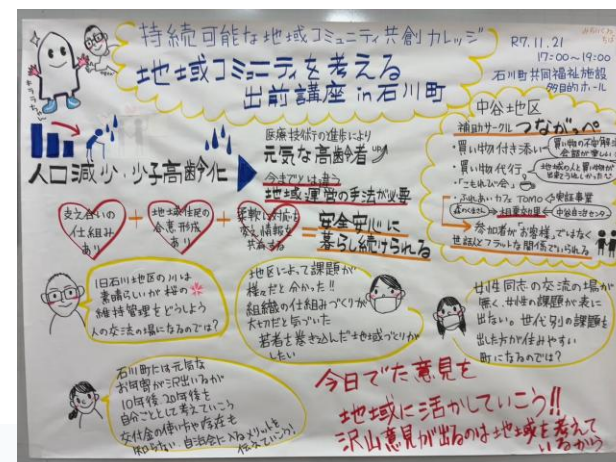 持続可能な地域コミュニティ共創カレッジ
地域コミュニティを考える
出前講座 in 石川町
R7.11.21
17:00~19:00
石川町共同福祉施設
多目的ホール
人口減少・少子高齢化
医療技術の進歩により
元気な高齢者 up
今までとは違う
地域運営の手法が必要
支え合いの
仕組み
あり
+
地域住民の
合意形成
あり
+
柔軟に対応
共有する
=
安全安心に
暮らし続けられる
中谷地区
補助サークル つながっぺ
・買い物付き添い
・買い物代行
・ふれあいカフェ TOMO
実証事業
相乗効果
参加者がお客様ではなく
世話人とフラットな関係でいられる
旧石川地区の川は
素晴らしいが桜の
維持管理をどうしよう
人の交流の場になるのでは?
地区によって課題が
様々だと分かった!!
組織の仕組みづくりが
大切だと気づいた
若者も巻き込んだ地域づくりが
したい
女性同志の交流の場が
無く、女性の課題が表に
出ない。世代別の課題を
出した方が住みやすい
町になるのでは?
石川町には元気な
お年寄が沢山いるが
10年後、20年後も
自分ごととして考えていこう
交付金の使い方や存在も
知らない 自治会に入るメリットを
伝えていこう!
今日でた意見を
地域に活かしていこう!!
沢山意見が出るのは地域を考えて
いるから